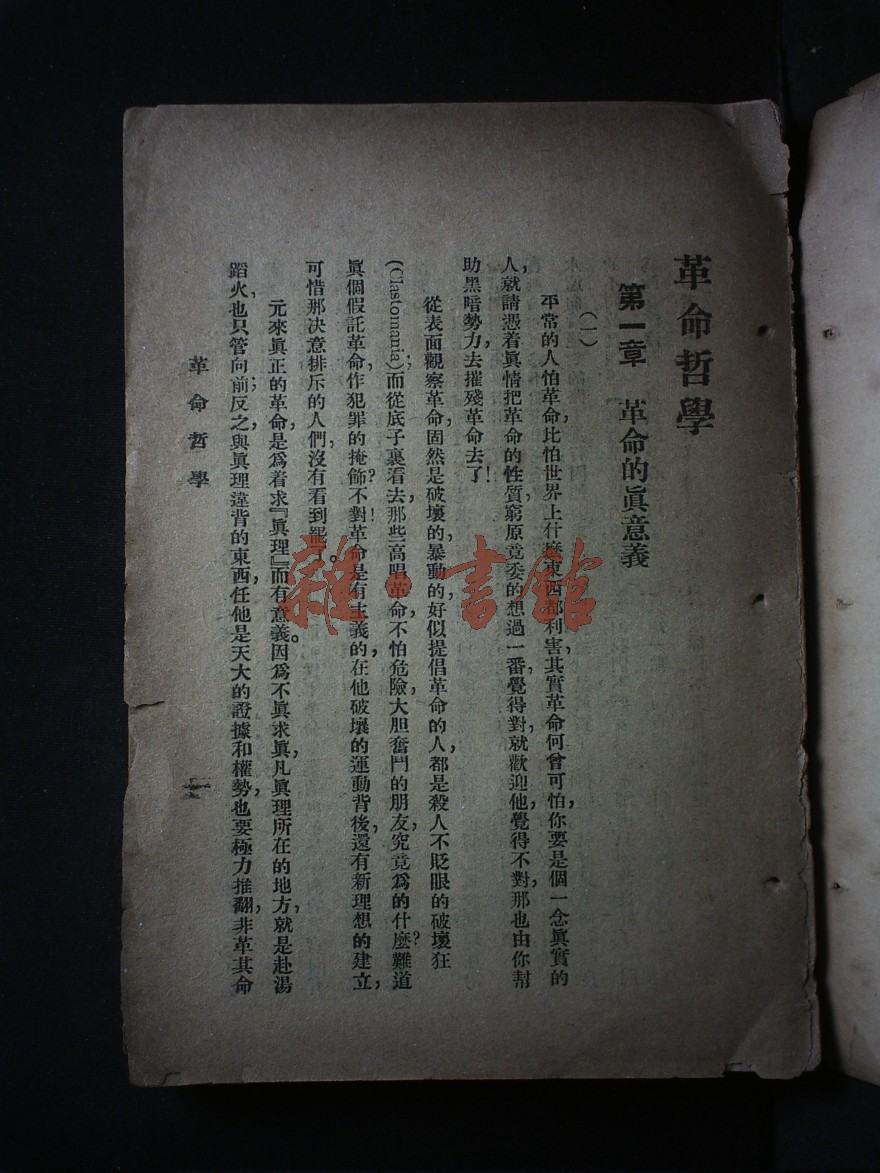 革命哲學
第一章　革命的眞意義
（一）
平常的人怕革命，比怕世界上什麽東西都利害，其實革命何曾可怕，你要是個一念眞實的
人，就請憑着眞情把革命的性質窮原竟委的想過一番，覺得對，就歡迎他，覺得不對，那也由你幫
助黑暗勢力，去摧殘革命去了！
從表面觀察革命，固然是破壞的，暴動的，好似提倡革命的人，都是殺人不貶眼的破壞狂
(Clastomania)；而從底子裏看去，那些高唱革命，不怕危險，大胆奮鬥的朋友，究竟爲的什麽？難道
眞個假託革命，作犯罪的掩飾？不對！革命是有主義的，在他破壞的運動背後，還有新理想的建立，
可惜那决意排斥的人們，沒有看到罷了。
元來眞正的革命，是爲着求『眞理』而有意義。因爲不眞求眞，凡眞理所在的地方，就是赴湯
蹈火，也只管向前；反之，與眞理違背的東西，任他是天大的證據和權勢，也要極力推翻，非革其命
革命哲學
一
雜·書館